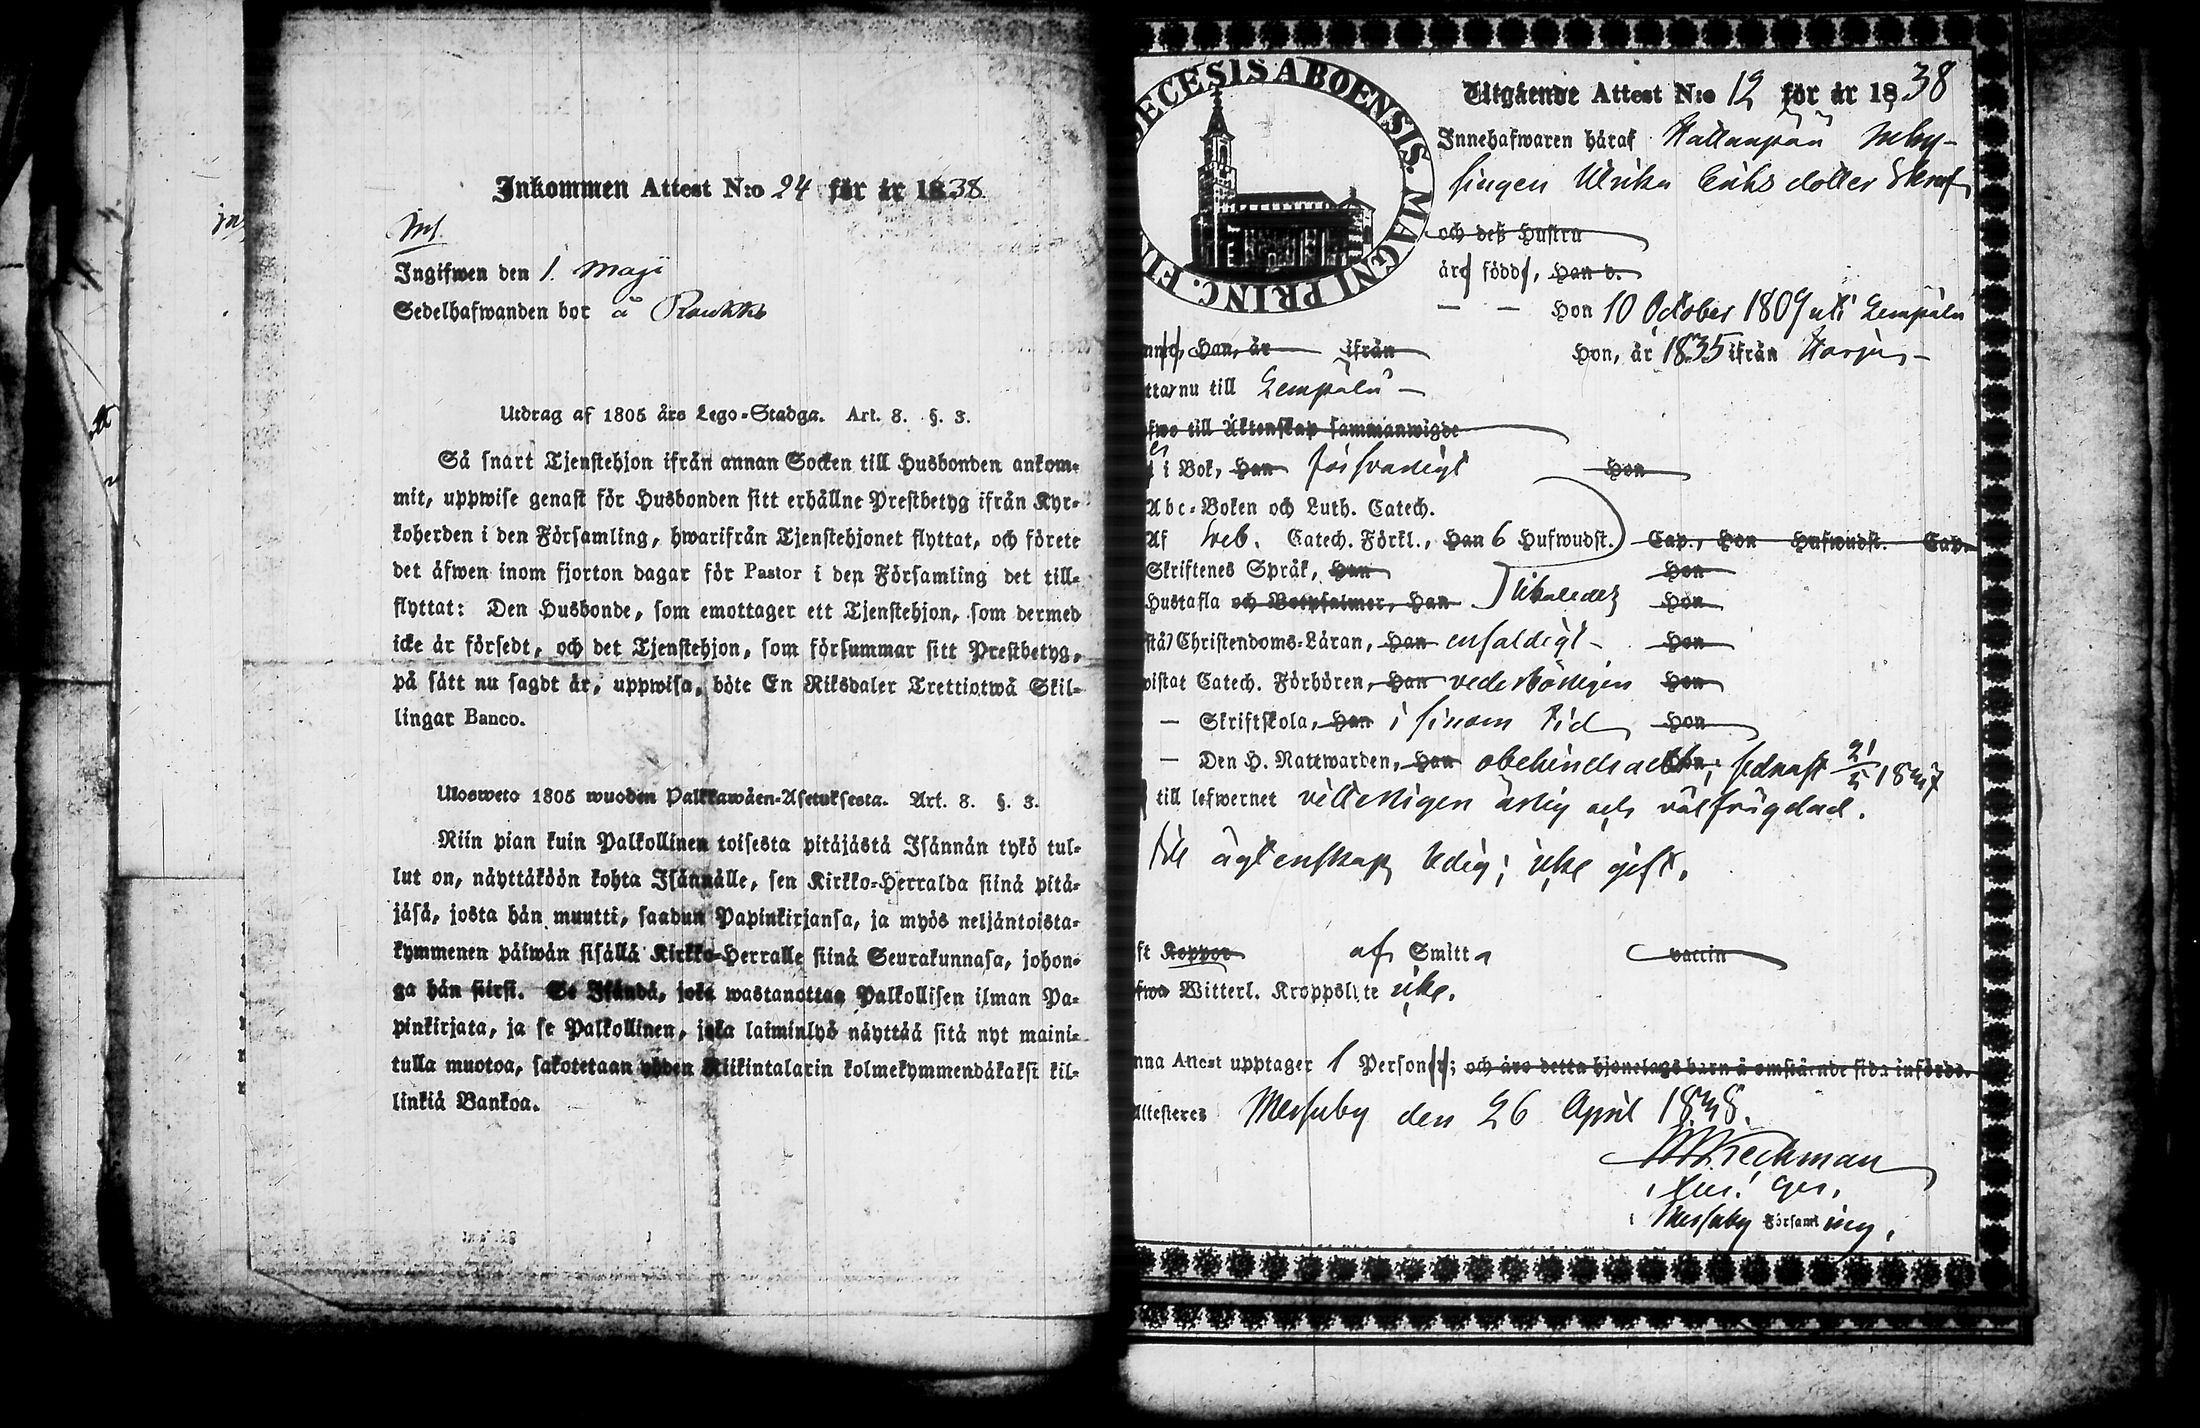 Inkommen Attest N:o 24 för år 1838
Ingifwen den 1. Maji
Sedelhafwanden bor å Roukko
Utdrag af 1805 års Lego-Stadga. Art. 8. §. 3.
Så snart Tjenstehjon ifrån annan Socken till Husbonden ankom-
mit, uppwise genast för Husbonden sitt erhållne Prestbetyg ifrån Kyr-
koherden i den Församling, hwarifrån Tjenstehjonet flyttat, och förete
det äfwen inom fjorton dagar för Pastor i den Församling det till-
flyttat: Den Husbonde, som emottager ett Tjenstehjon, som dermed
icke är försedt, och det Tjenstehjon, som försummar sitt Prestbetyg,
på sätt nu sagdt är, uppwisa, böte En Riksdaler Trettiotwå Skil-
lingar Banco.
Ulosweto 1805 wuoden Palkkawäen-Asetuksesta. Art. 8. §. 3.
Niin pian kuin Palkollinen toisesta pitäjästä Isännän tykö tul-
lut on, näyttäköön kohta Isännälle, sen Kirkko-Herralda siinä pitä-
jäsä, josta hän muutti, saadun Papinkirjansa, ja myös neljäntoista-
kymmenen päiwän sisällä Kirkko-Herralle siinä Seurakunnasa, johon-
ga hän siirsi. Se Isändä, joka wastanottaa Palkollisen ilman Pa-
pinkirjata, ja se Palkollinen, joka laiminlyö näyttää sitä nyt maini-
tulla muotoa, sakotetaan yhden Riikintalarin kolmekymmendäkaksi kil-
linkiä Bankoa.
DIECESIS ABOENSIS. MAGNI PRINC. FI
Utgående Attest N:o 12 för år 1838
Innehafwaren häraf Hattanpää Inhy-
singen Ulrika Eriks dotter
och deß Hustru
äro född, Han d.
— — Hon 10 October 1809 uti Lempälä
Han, år ifrån Hon, år 1835 ifrån Harju
nu till Lempälä
till Äktenskap sammanwigde
i Bok, Han försvarligt Hon
Abc-Boken och Luth. Catech.
Af Sveb. Catech. Förkl., Han 6 Hufwudst. Cap., Hon Hufwudst. Cap.
Skriftenes Språk, Han Hon
Hustafla och Botpsalmer, Han likaledes Hon
Christendoms-Läran, Han enfaldigt Hon
Catech. Förhören, Han vederbörligen Hon
— Skriftskola, Han i sinom tid Hon
— Den H. Nattwarden, Han obehindrad Hon; sednast 21/5 1837
till lefwernet vitterligen ärlig och välfrägdad.
till ägtenskap ledig; icke gift.
Koppor af Smitt vaccin
Witterl. Kroppslyte icke.
Attest upptager 1 Person; och äro detta hjonelags barn å omstående sida införde.
Attesteres Messuby den 26 April 1838.
i Messuby Församling.